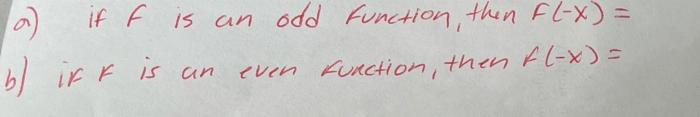 a) if f is an odd function, then f(-x) =
b) if f is an even function, then f(-x) =